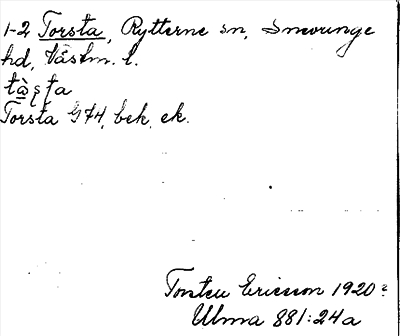 1-2 Torsta, Rytterne sn, Snevringe
hd, Västm. l.
Torsta G74, bek, ek.
Torsten Ericsson 1920?
Ulma 881:24a